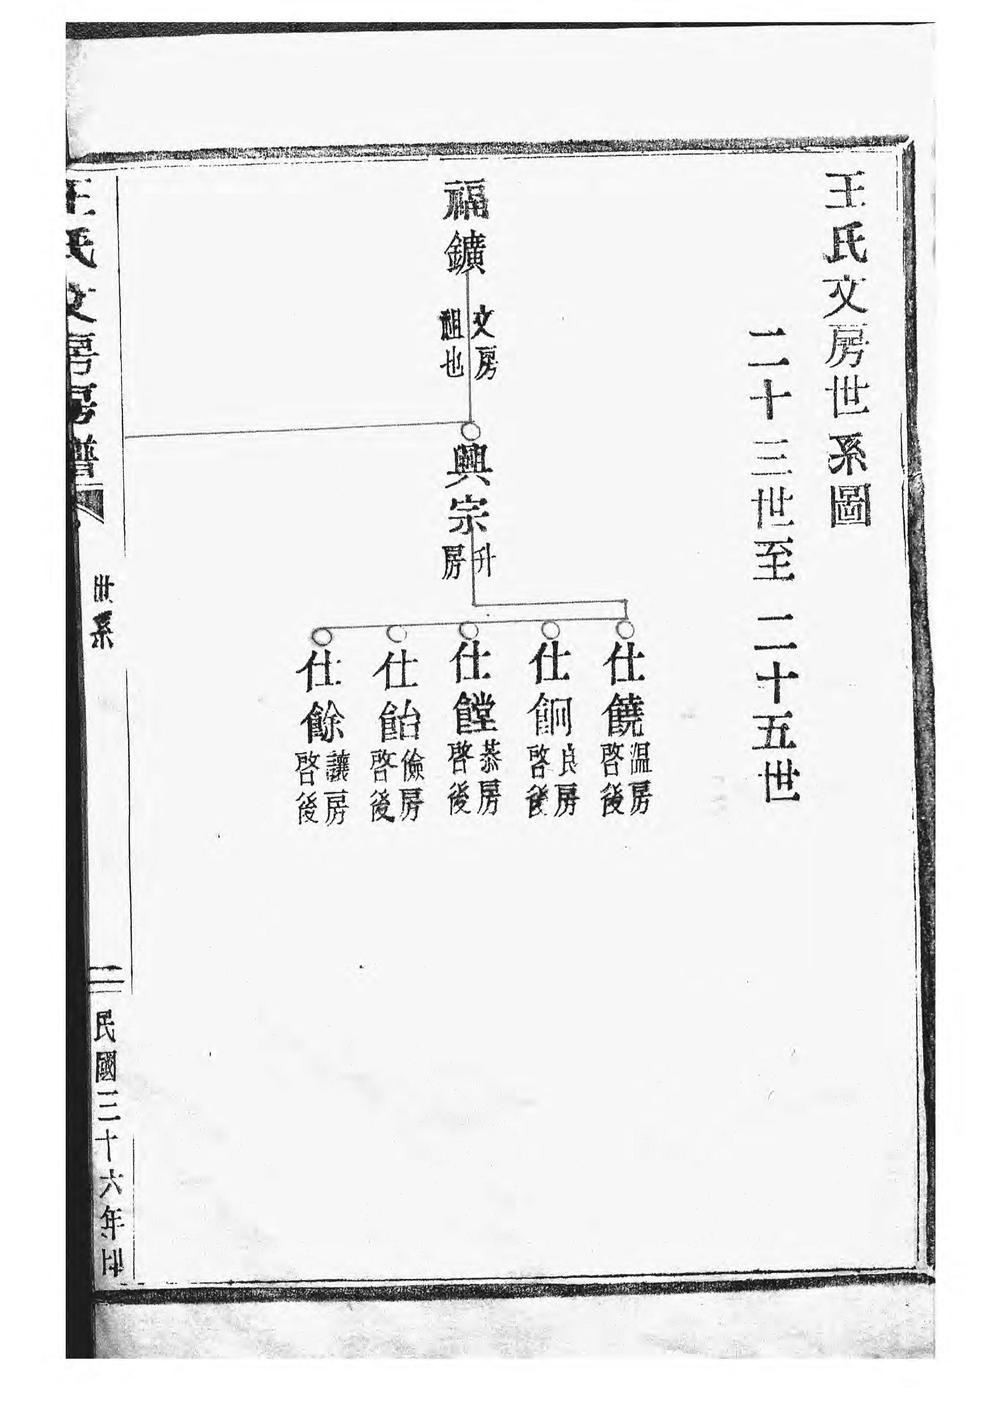 王氏文房世系圖
二十三世至二十五世
福鑛
文房
祖也
興宗
升
房
仕饒
温房
啓後
仕餉
良房
啓後
仕饄
恭房
啓後
仕飴
儉房
啓後
仕餘
讓房
啓後
王氏文房房譜
世系
二
民國三十六年